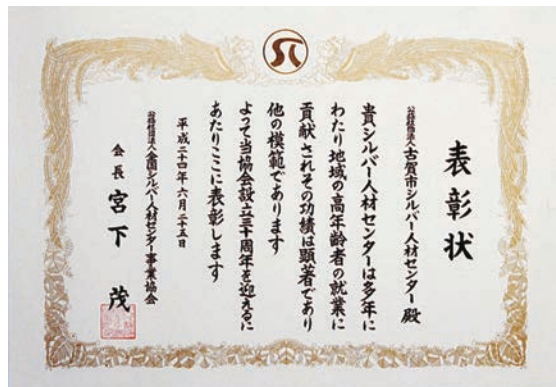 表彰状
公益社団法人古賀市シルバー人材センター 殿
貴シルバー人材センターは多年に
わたり地域の高年齢者の就業に
貢献されその功績は顕著であり
他の模範であります
よって当協会設立三十周年を迎えるに
あたりここに表彰します
平成二十四年六月二十五日
公益社団法人全国シルバー人材センター事業協会
会長 宮下 茂